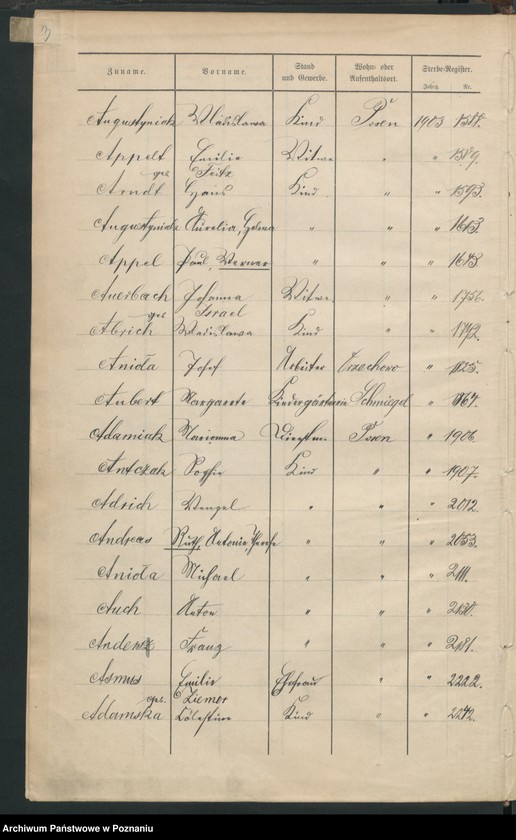 Zuname. Vorname. Stand und Gewerbe. Wohn- oder Aufenthaltsort. Sterbe-Register.
Jahrg. Nr.
Augustyniak Wladislawa Kind Posen 1903 1511.
Appelt Emilie Witwe " " 1519.
geb. Feitz
Arndt Hans Kind " " 1593.
Augustyniak Aurelia, Helena " " " 1613.
Appel Paul, Werner " " " 1643.
Auerbach Johanna Witwe " " 1756.
geb. Israel
Abrich Wladislawa Kind " " 1792.
Anioła Josef Arbeiter " 1825.
Aubert Margarete Kindergärtnerin Schmiegel " 1867.
Adamiak Marianna Posen " 1906.
Antczak Sophie Kind " " 1907.
Adrich Wenzel " " " 2012.
Andreas Ruth, Antonie, Therese " " " 2053.
Anioła Michael " " " 2111.
Auch Anton " " " 2130.
Franz " " " 2181.
Asmus Emilie Ehefrau " " 2222.
geb. Ziemer
Adamska Cölestine Kind " " 2242.
Archiwum Państwowe w Poznaniu